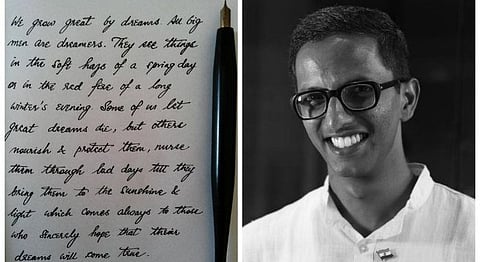 We grow great by dreams. All big
men are dreamers. They see things
in the soft haze of a spring day
or in the red fire of a long
winter's evening. Some of us let
great dreams die, but others
nourish & protect them, nurse
them through bad days till they
bring them to the sunshine &
light which comes always to those
who sincerely hope that their
dreams will come true.